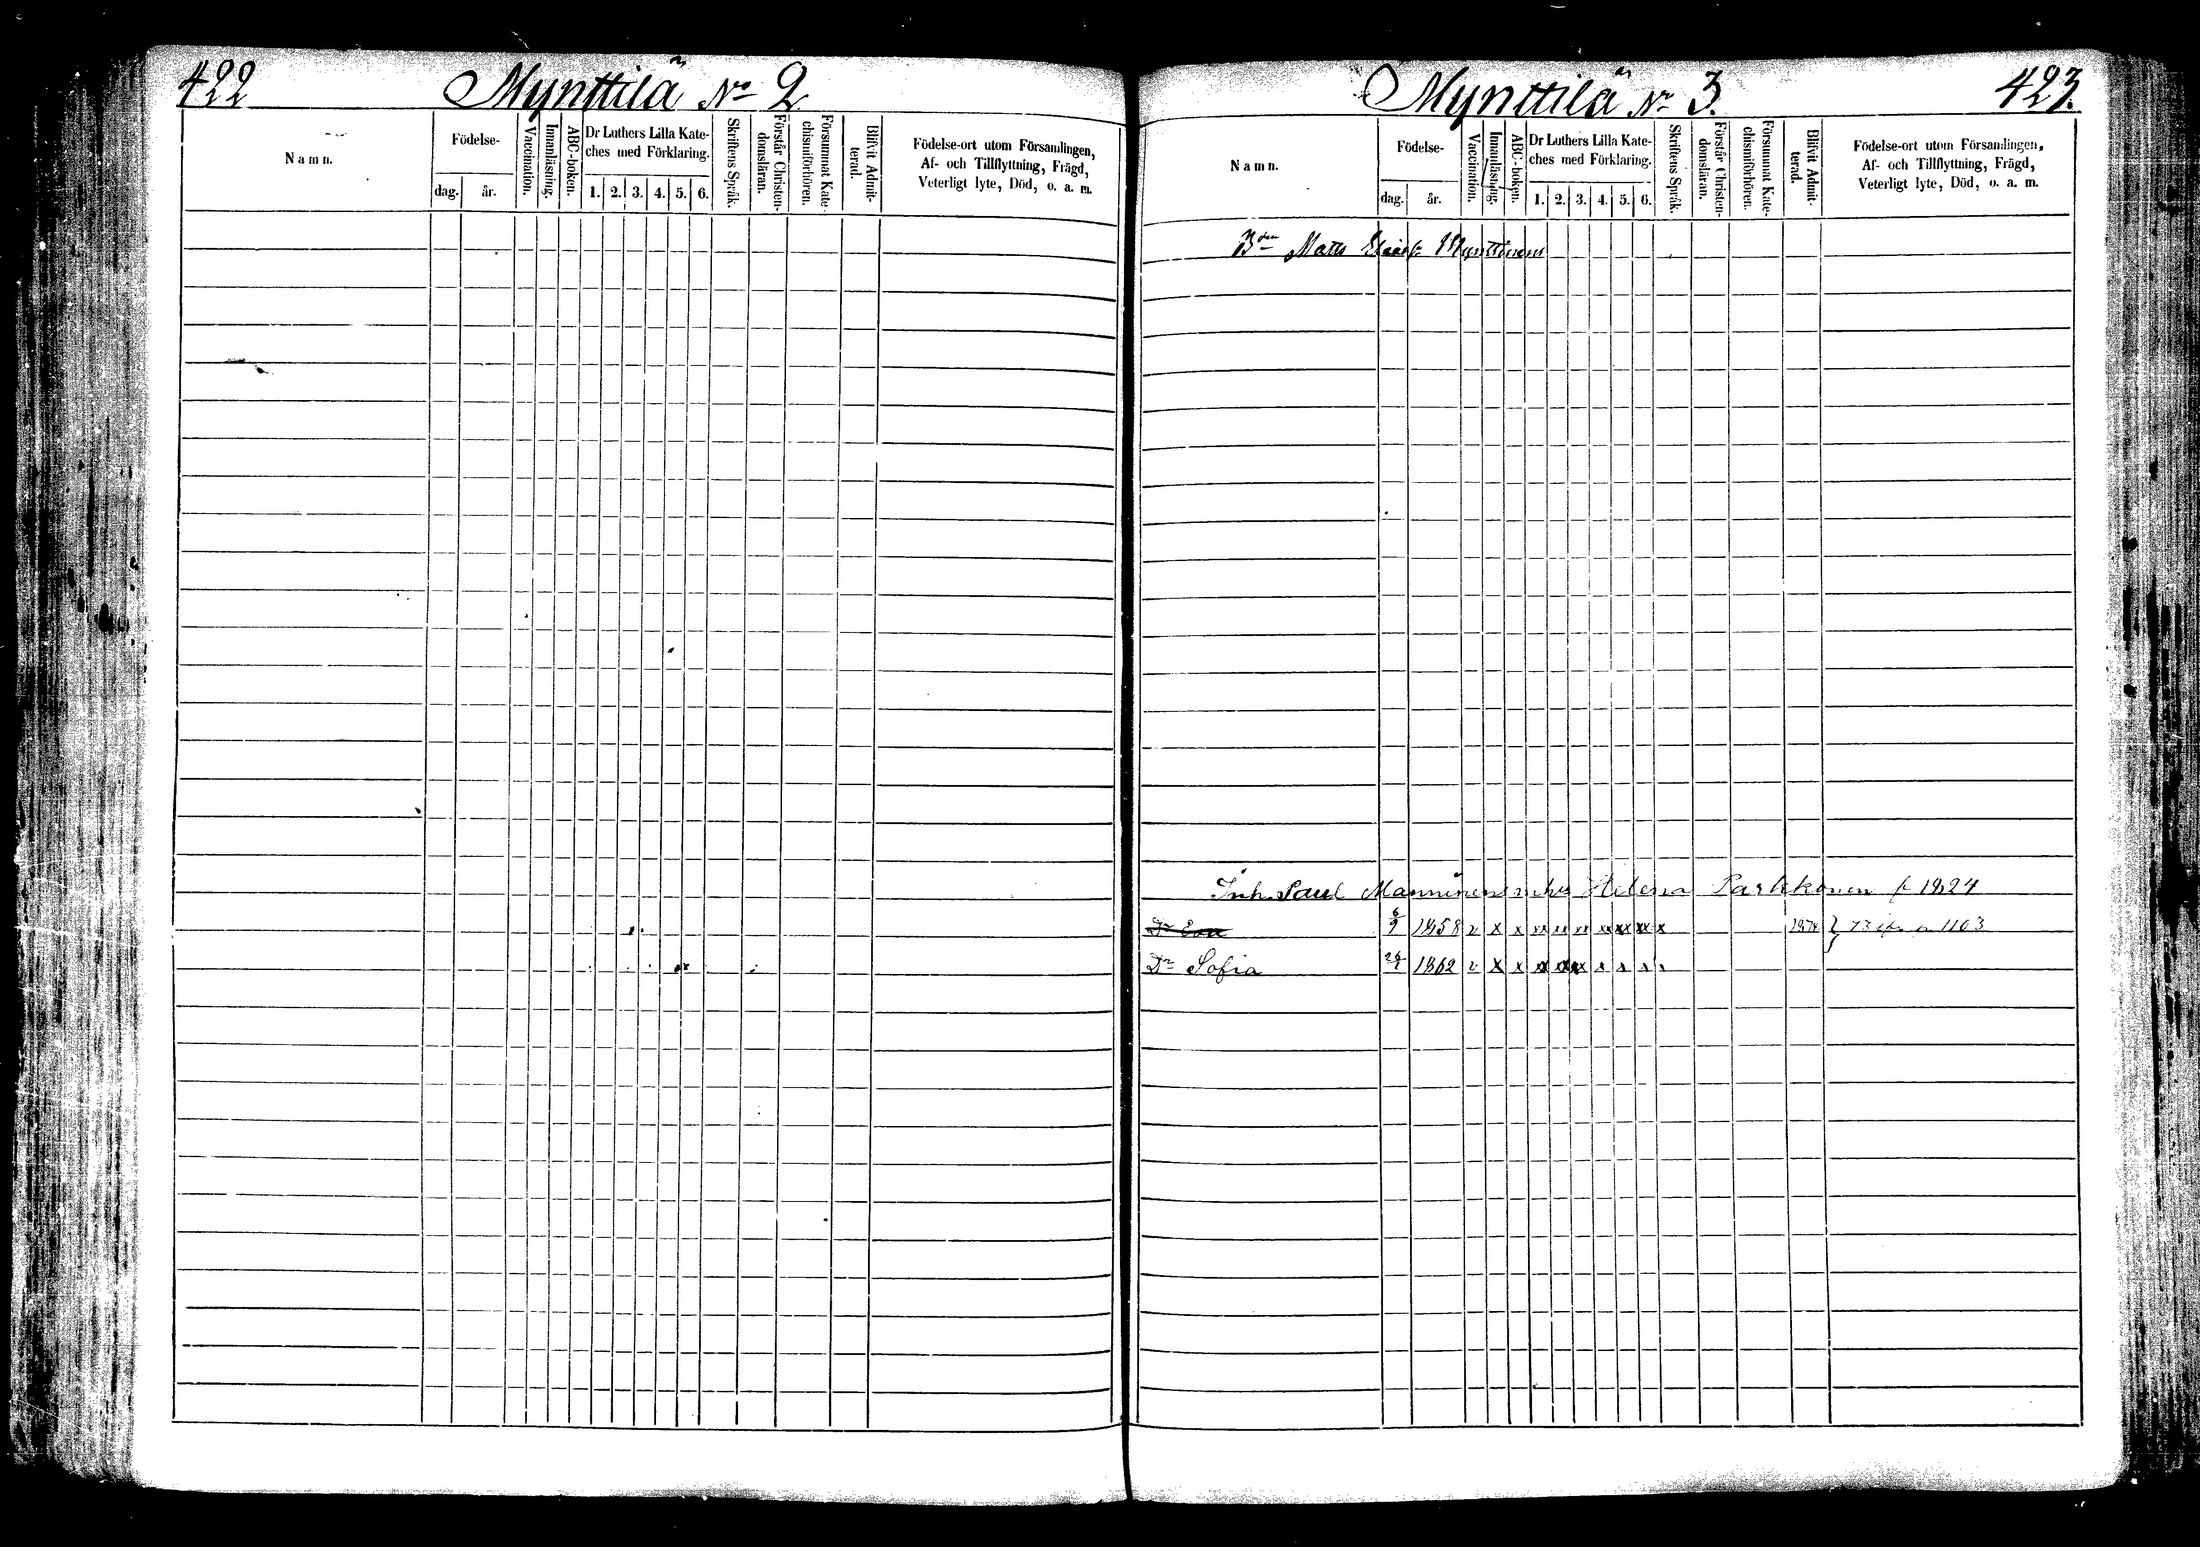 422 Mynttilä No 2
Namn.
Födelse-
dag. år.
Vaccination.
Innanläsning.
ABC-boken.
Dr Luthers Lilla Kate-
ches med Förklaring.
1. 2. 3. 4. 5. 6.
Skriftens Språk.
Förstår Christen-
domsläran.
Försummat Kate-
chismiförhören.
Blifvit Admit-
terad.
Födelse-ort utom Församlingen,
Af- och Tillflyttning, Frägd,
Veterligt lyte, Död, o. a. m.
Mynttilä No 3. 423.
Namn.
Födelse-
dag. år.
Vaccination.
Innanläsning.
ABC-boken.
Dr Luthers Lilla Kate-
ches med Förklaring.
1. 2. 3. 4. 5. 6.
Skriftens Språk.
Förstår Christen-
domsläran.
Försummat Kate-
chismiförhören.
Blifvit Admit-
terad.
Födelse-ort utom Församlingen,
Af- och Tillflyttning, Frägd,
Veterligt lyte, Död, o. a. m.
Bden Mats Mynttinen
Inh. Paul Manninens enka Helena Parkkonen f 1824
Dr 6/9 1858 v x x xx xx xx xx xx xx x 1874 } 1103
Dr Sofia 1862 v x x x x x x x x x